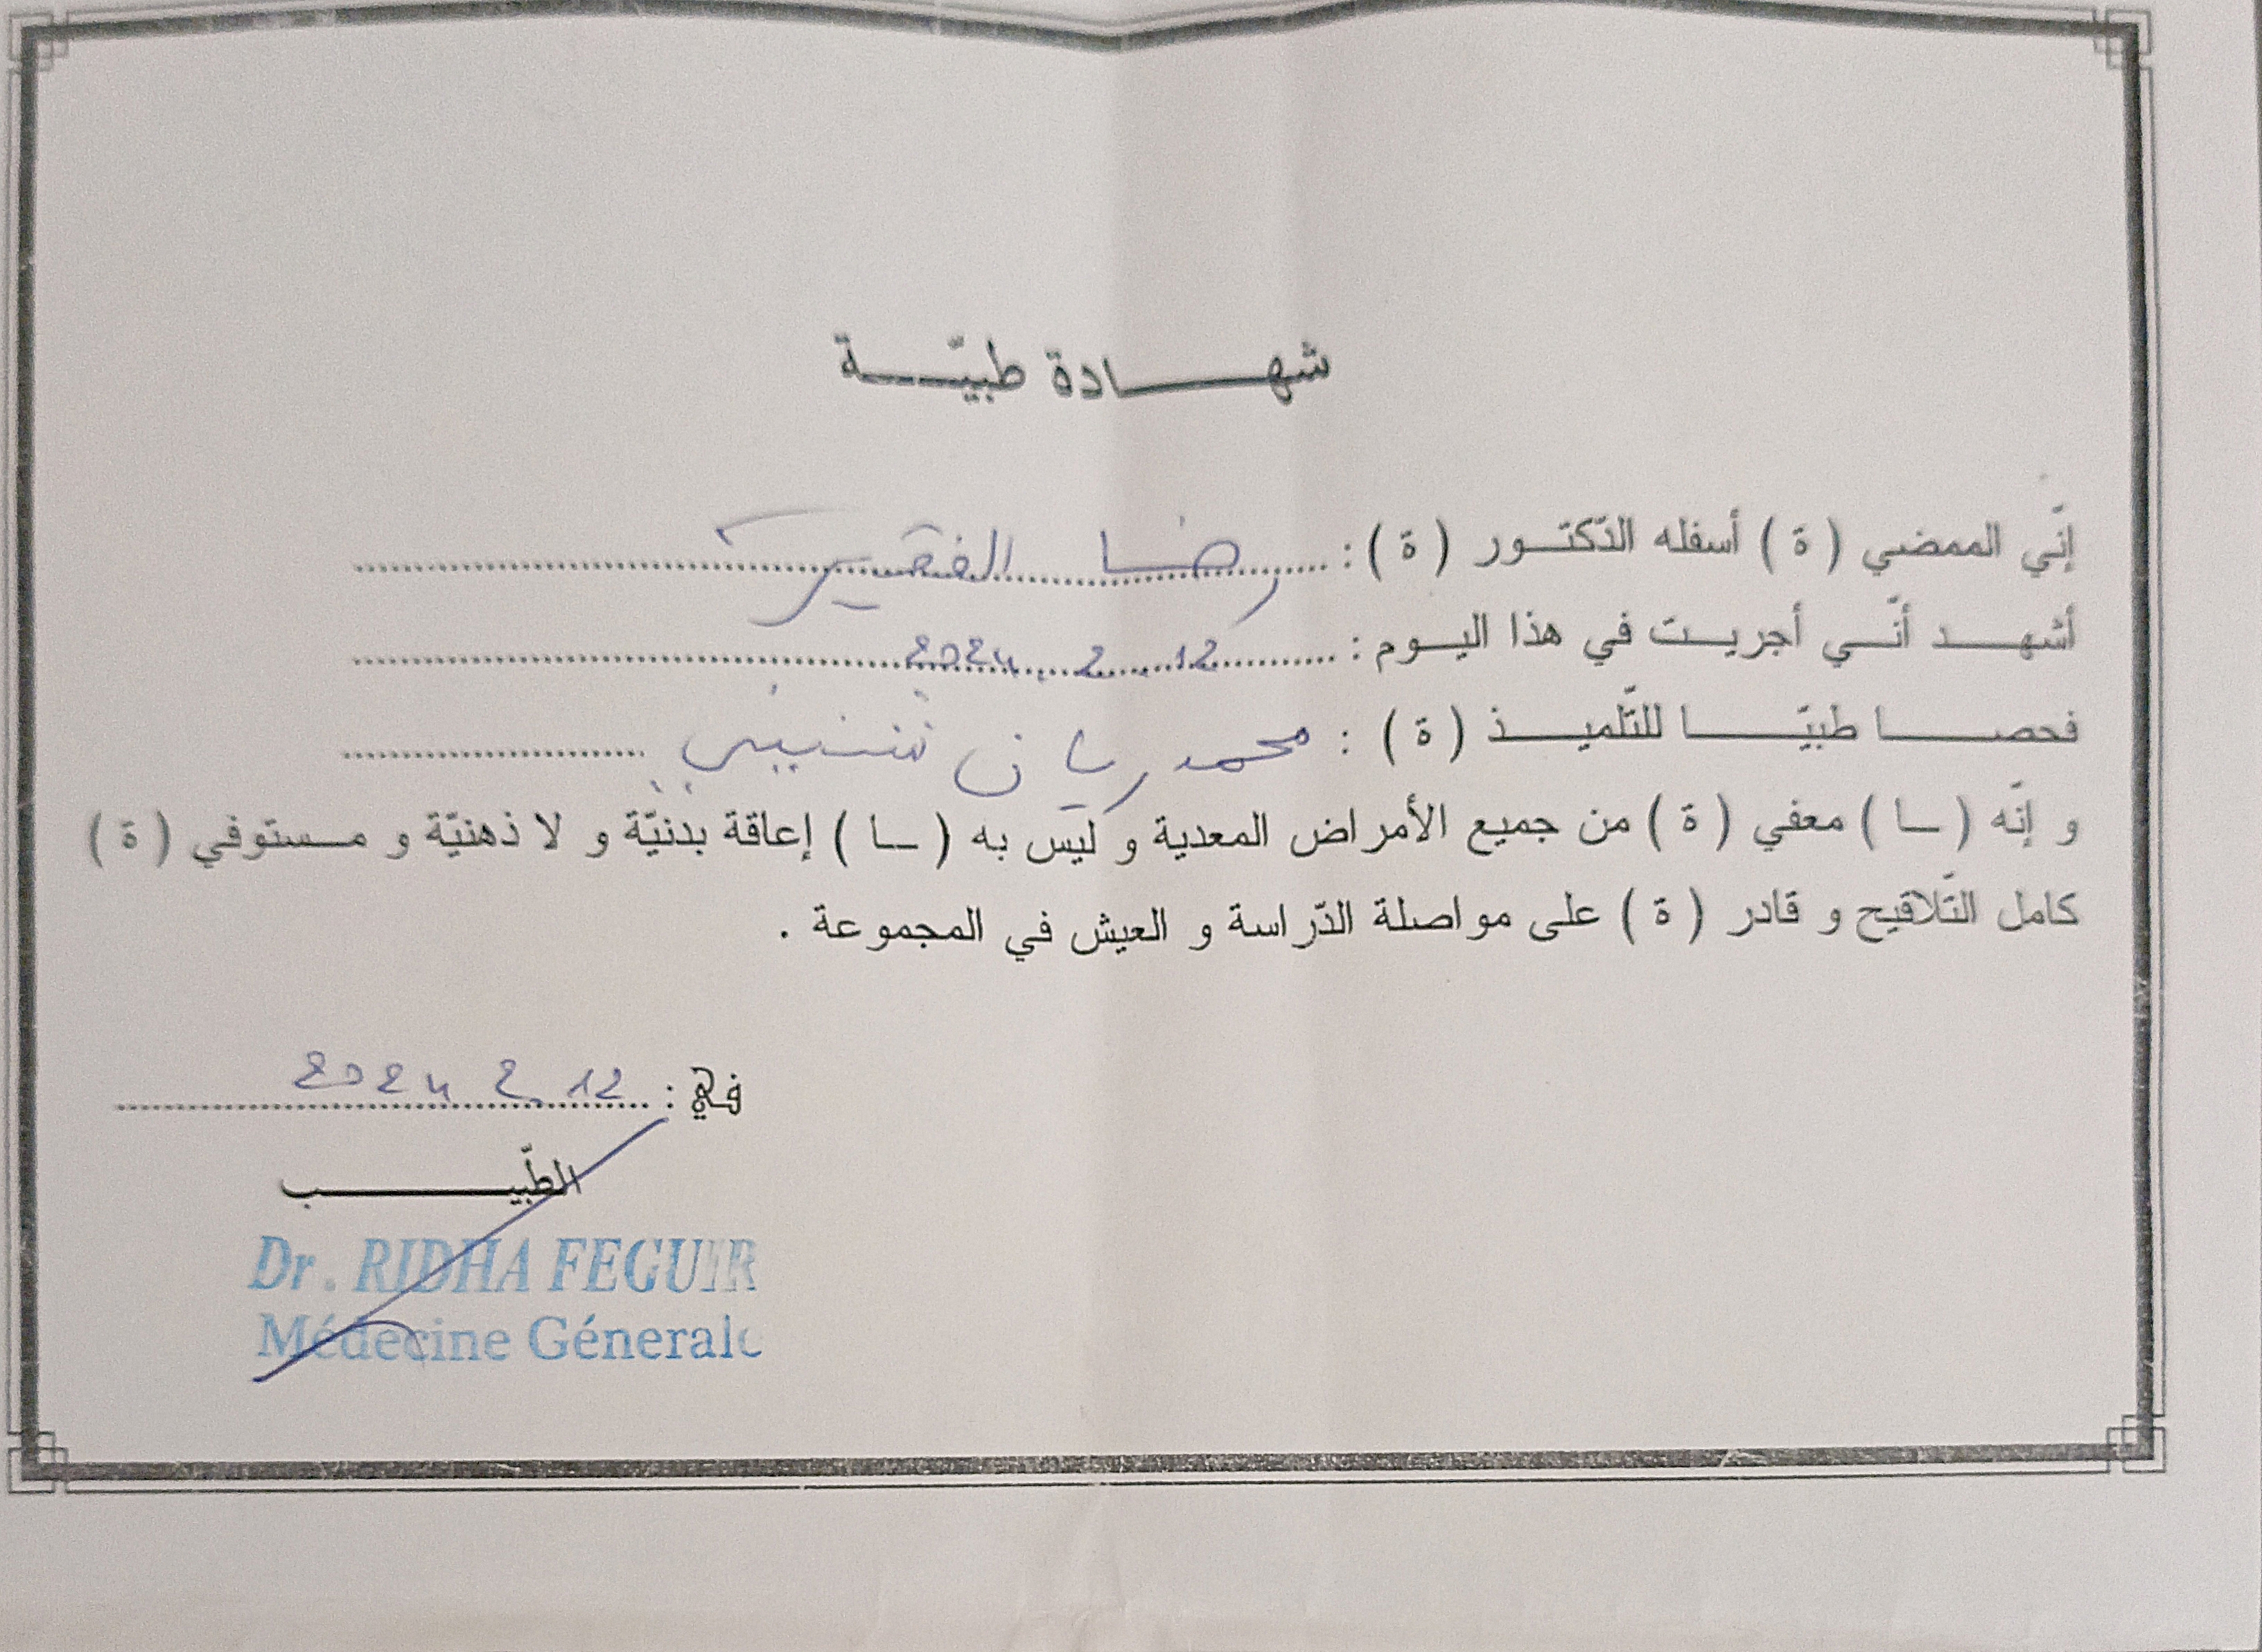 شهادة طبيّة
إنّي الممضي ( ة ) أسفله الدّكتور ( ة ) : رضا الفقير
أشهد أنّي أجريت في هذا اليوم : 12 . 2 . 2024
فحصا طبيّا للتّلميذ ( ة ) : محمد ريان
و إنّه ( ـا ) معفي ( ة ) من جميع الأمراض المعدية و ليس به ( ـا ) إعاقة بدنيّة و لا ذهنيّة و مستوفي ( ة )
كامل التّلاقيح و قادر ( ة ) على مواصلة الدّراسة و العيش في المجموعة .
في : 12 . 2 2024
الطّبيب
Dr. RIDHA FEGUIR
Médecine Génerale